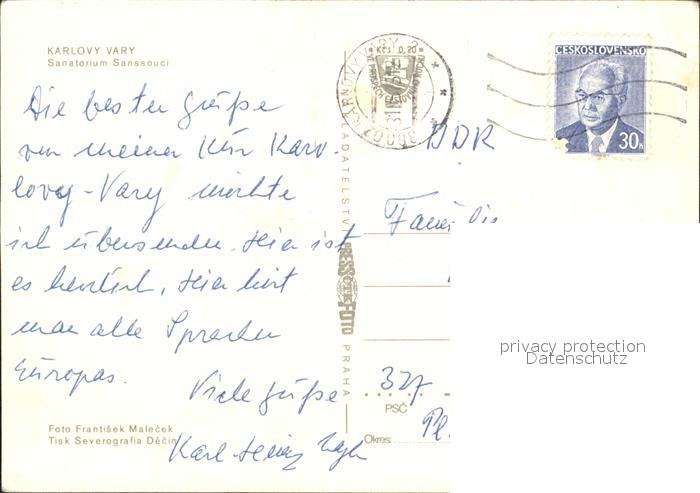 KARLOVY VARY
Sanatorium Sanssouci
Die besten Grüße
von meiner Kur Karl-
lovy-Vary möchte
ich übersenden. Hier ist
es herrlich, Hier hört
man alle Sprachen
Europas.
Viele Grüße
Karl Heinz
Foto František Maleček
Tisk Severografia Děčín
NAKLADATELSTVÍ PRESSFOTO PRAHA
Kčs 0,20
36007 KARLOVY VARY
ČESKOSLOVENSKO
30h
DDR
Fam.
327
PSČ
Okres:
privacy protection
Datenschutz